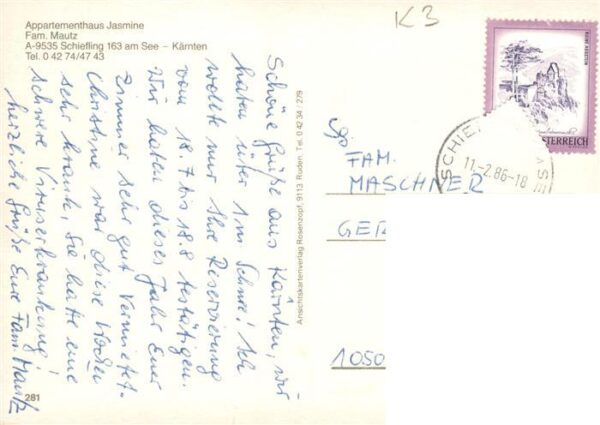 Appartementhaus Jasmine
Fam. Mautz
A-9535 Schiefling 163 am See – Kärnten
Tel. 0 42 74/47 43
Schöne Grüße aus Kärnten, wir
haben über 1m Schnee! Ich
wollte nur Ihre Reservierung
vom 18.7 bis 18.8 bestätigen.
Wir haben dieses Jahr Euer
Zimmer sehr gut vermietet.
Christine war diese Wochen
sehr krank, sie hatte eine
schwere Viruserkrankung!
herzliche Grüße Eure Fam Mautz
281
Ansichtskartenverlag Rosenzopf, 9113 Ruden, Tel. 0 42 34 / 279
K3
ÖSTERREICH
SCHIE
11.-2.86-18
SEE
FAM.
MASCHNER
GER
1050